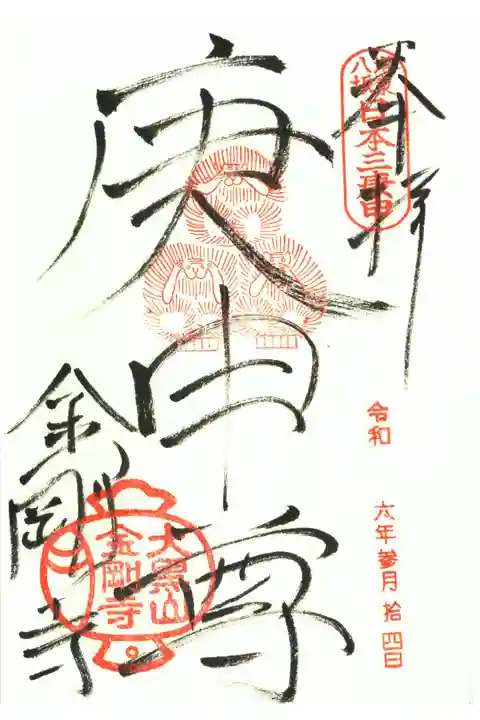 奉拝
京東山
八坂日本三庚申
令和
六年参月拾四日
庚申尊
金剛寺
大黒山
金剛寺